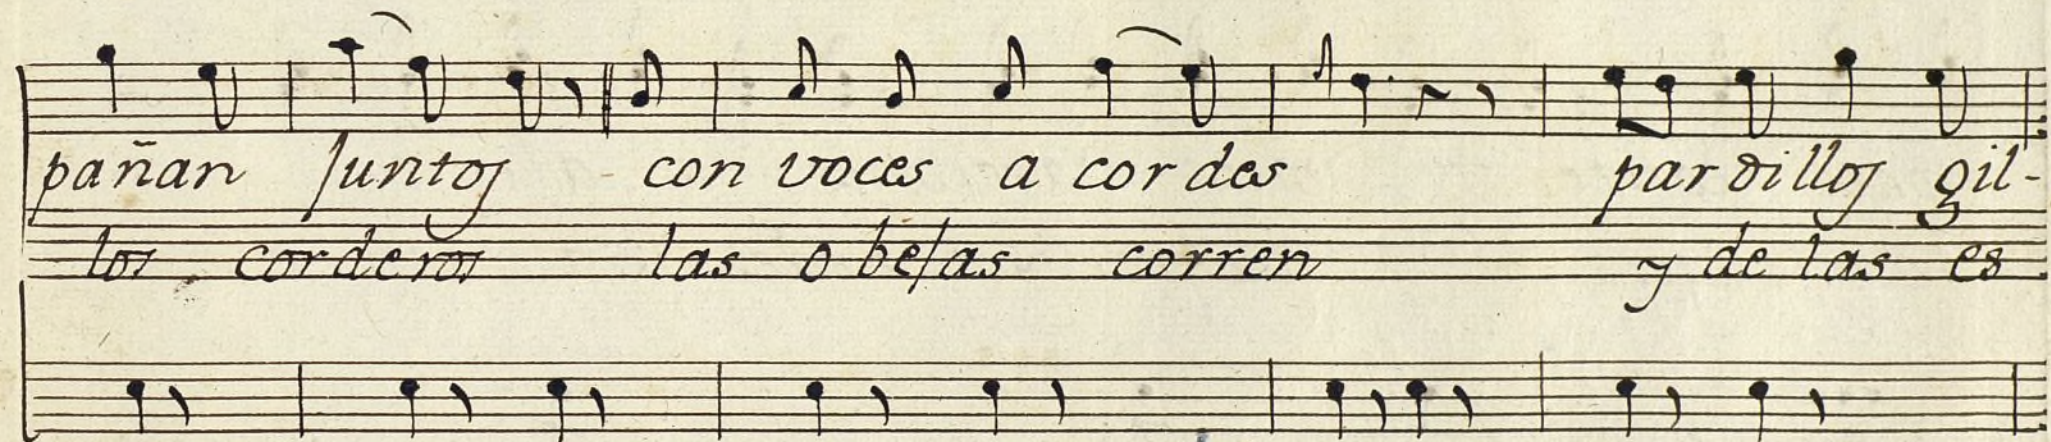 pañan Juntos con voces a cor des par dillos gil-
los corderos las o bejas corren y de las es